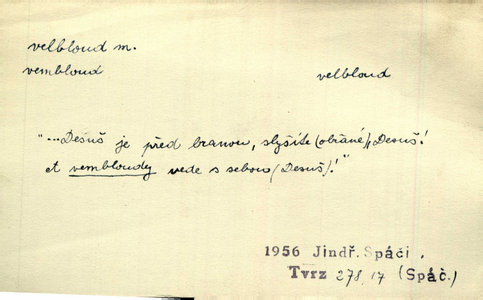 velbloud m.
vembloud velbloud
"...Dešuš je před branou, slyšíte (občané), Dešuš!
A vembloudy vede s sebou (Dešuš)!"
1956 Jindř. Spáči.
Tvrz 278,17 (Spáč.)